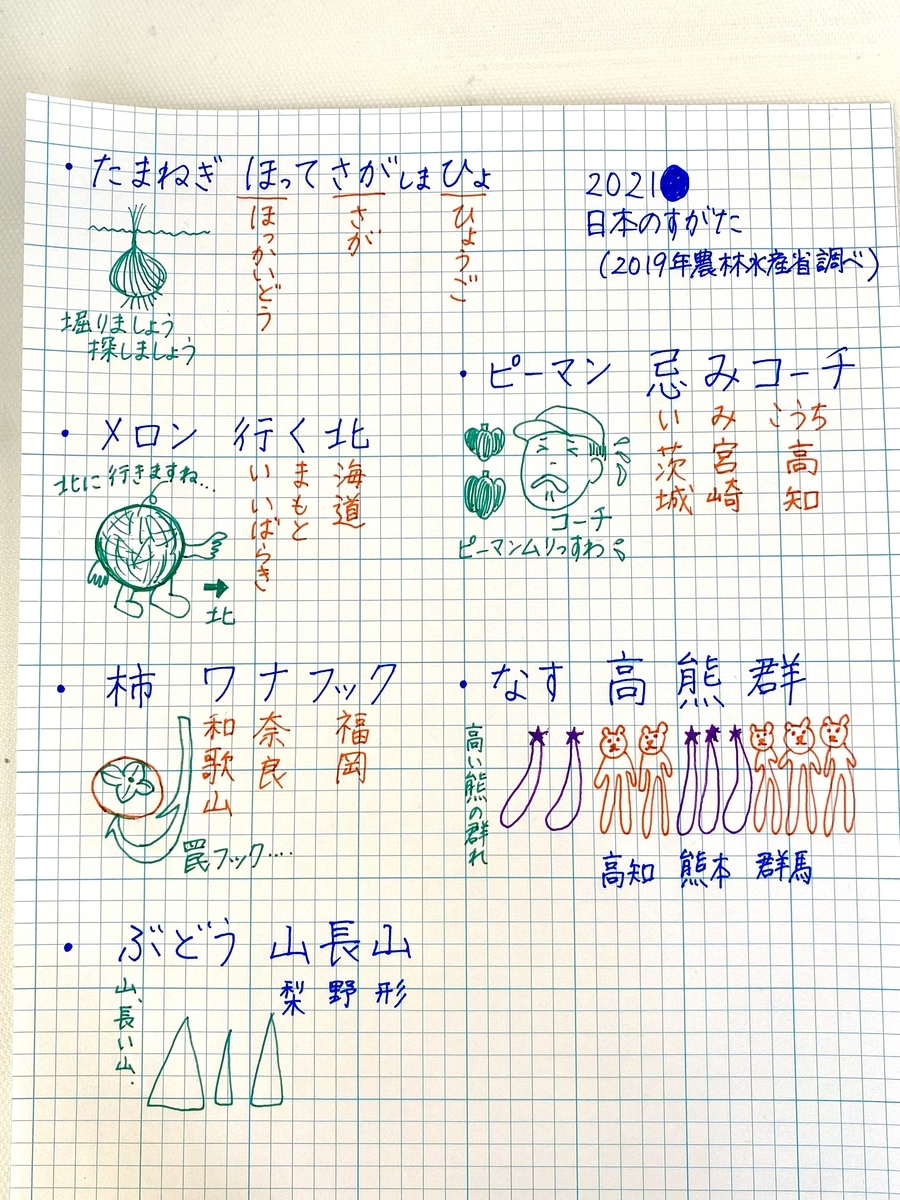 ・たまねぎ ほってさがしまひょ
ほっかいどう
さが
ひょうご
堀りましょう
探しましょう
2021
日本のすがた
(2019年農林水産省調べ)
・ピーマン 忌みコーチ
い み こうち
茨城 宮崎 高知
コーチ
ピーマンムリっすわ
・メロン 行く北
北に行きますね…
いいばらき
まもと
海道
北
・柿 ワナフック
和歌山
奈良
福岡
罠フック‥‥
・なす 高熊群
高い熊の群れ
高知 熊本 群馬
・ぶどう 山長山
梨 野 形
山、長い山、